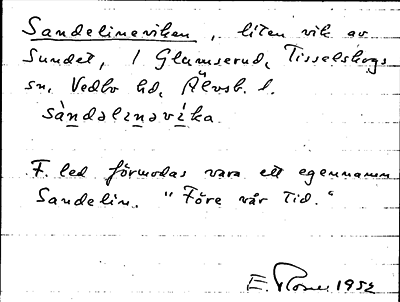 Sandelineviken, liten vik av
Sundet, i Glumserud, Tisselskogs
sn, Vedbo hd, Älvsb. l.
sàndəlinəvíka.
F. led förmodas vara ett egennamn
Sandelin. "Före vår tid."
E. 1952